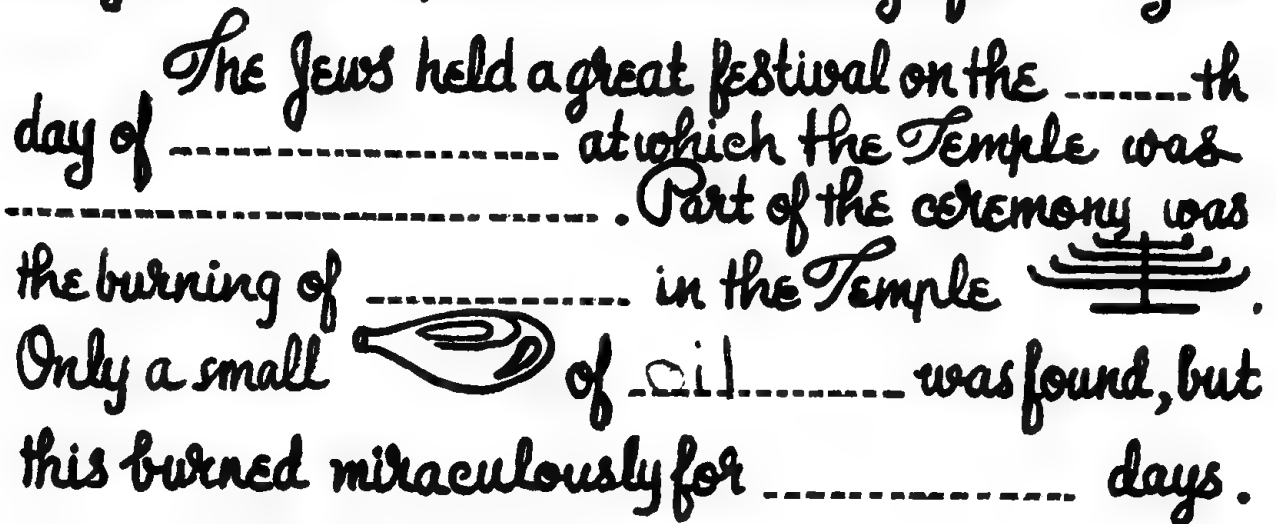 The Jews held a great festival on the ........th
day of ........................ at which the Temple was
..................................... . Part of the ceremony was
the burning of ................ in the Temple .
Only a small of oil was found, but
this burned miraculously for ................... days.